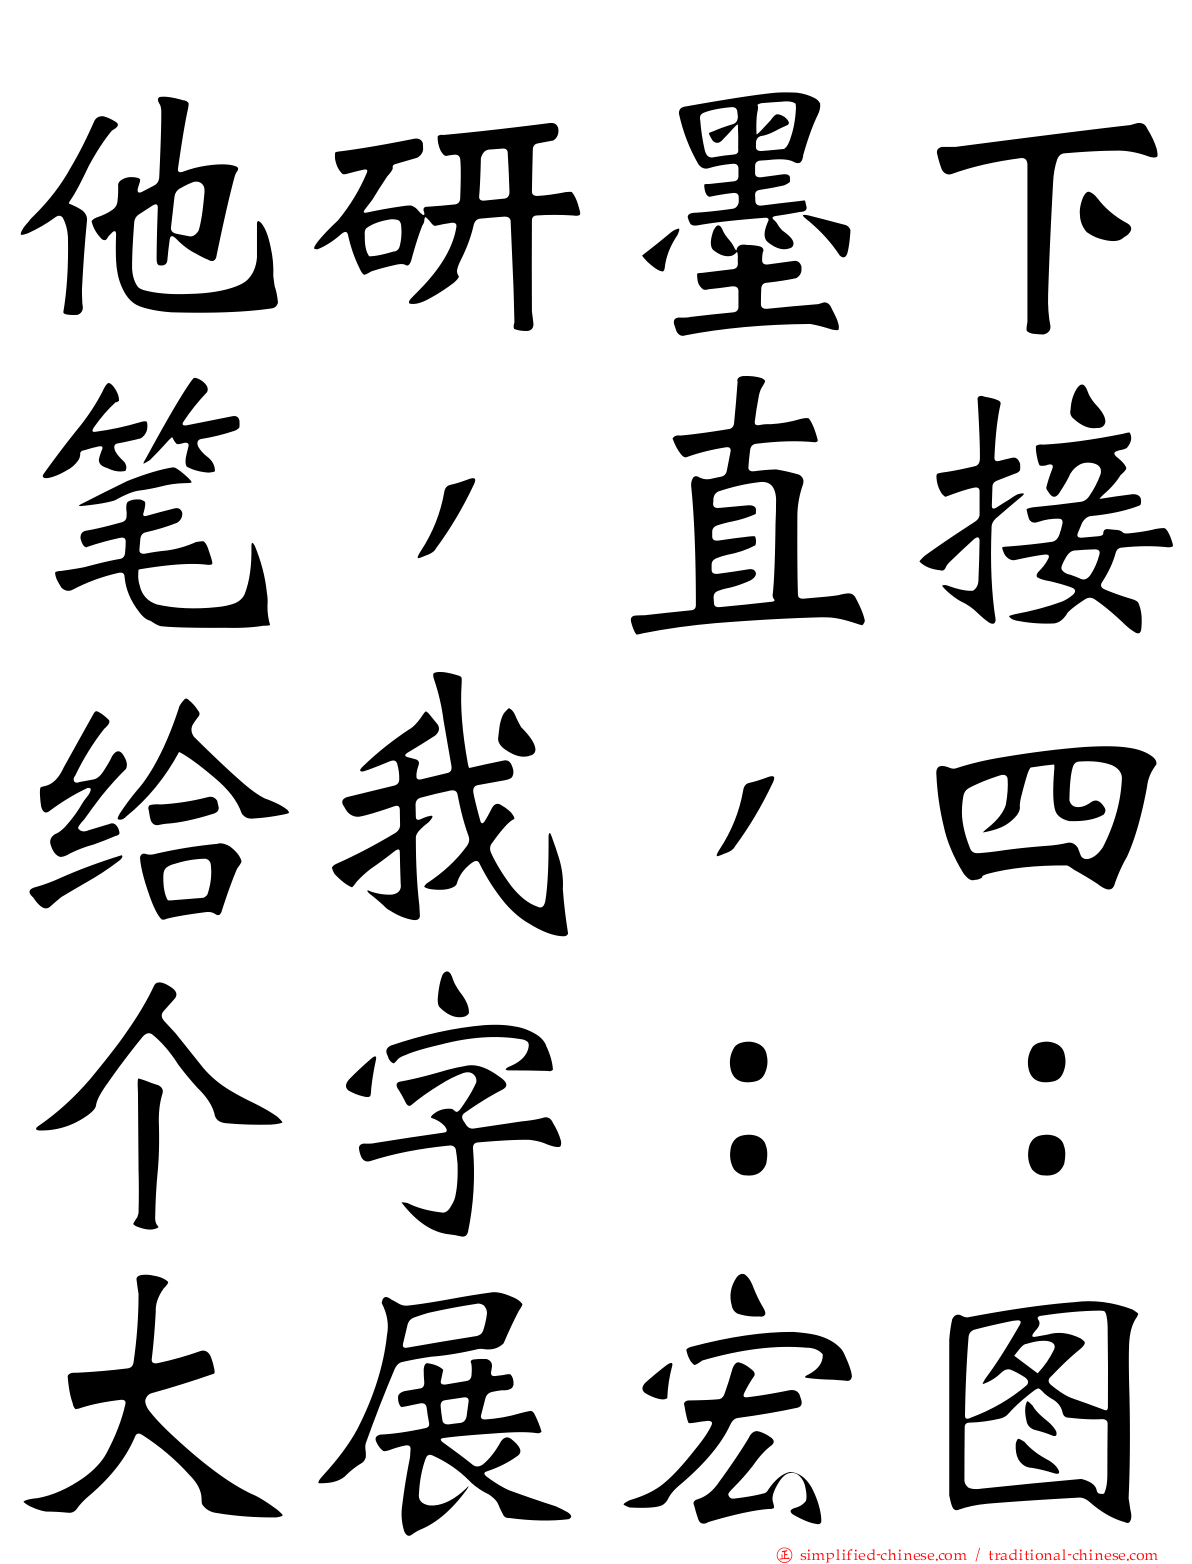 他研墨下
笔，直接
给我，四
个字：：
大展宏图
正 simplified-chinese.com / traditional-chinese.com